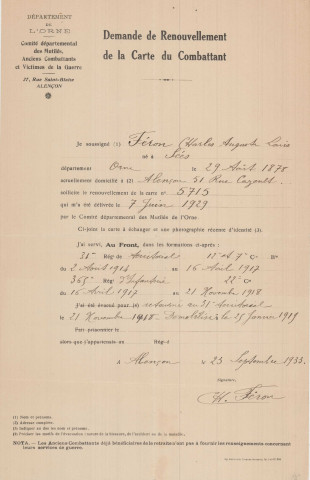 DÉPARTEMENT
DE
L'ORNE
Comité départemental
des Mutilés,
Anciens Combattants
et Victimes de la Guerre
27, Rue Saint-Blaise
ALENÇON
Demande de Renouvellement
de la Carte du Combattant
Je soussigné (1) Féron Charles Auguste Louis
né à Sées
département Orne le 29 Août 1878
actuellement domicilié à (2) Alençon 51 Rue Cazault
sollicite le renouvellement de la carte n° 5715
qui m'a été délivrée le 7 Juin 1929
par le Comité départemental des Mutilés de l'Orne
Ci-joint la carte à échanger et une photographie récente d'identité (3).
J'ai servi, Au Front, dans les formations ci-après :
31e Rég de Territorial 11e et 7e Cie
du 2 Août 1914 au 16 Avril 1917
Rég d'Infanterie 22e Cie
du 16 Avril 1917 au 21 Novembre 1918
J'ai été évacué pour (4) au 31e Territorial
le 21 Novembre 1918 Démobilisé le 15 Janvier 1919
Fait prisonnier le
alors que j'appartenais au Rég-d
A Alençon le 23 Septembre 1933
Signature,
Féron
(1) Nom et prénoms.
(2) Adresse complète.
(3) Indiquer au dos les nom et prénoms.
(4) Préciser les motifs de l'évacuation, nature de la blessure, de l'accident ou de la maladie.
NOTA. — Les Anciens Combattants déjà bénéficiaires de la retraite n'ont pas à fournir les renseignements concernant
leurs services de guerre.